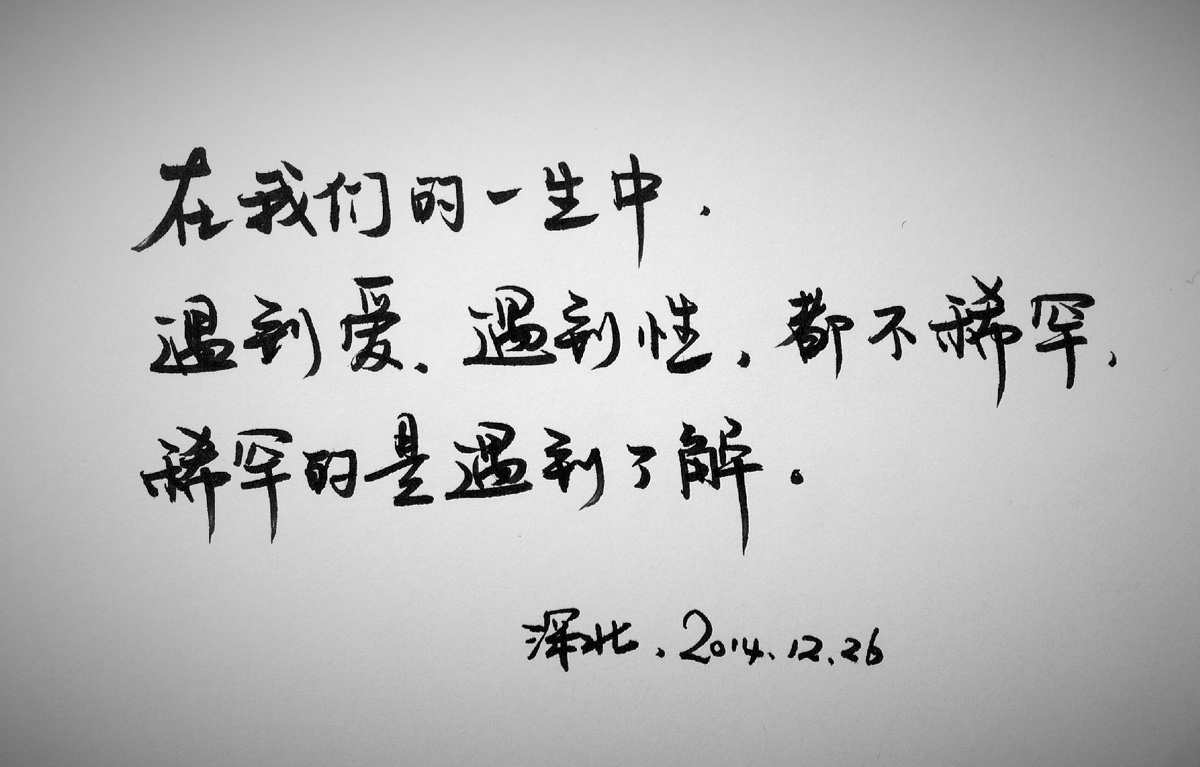 在我们的一生中.
遇到爱、遇到性,都不稀罕,
稀罕的是遇到了解。
深北、2014.12.26